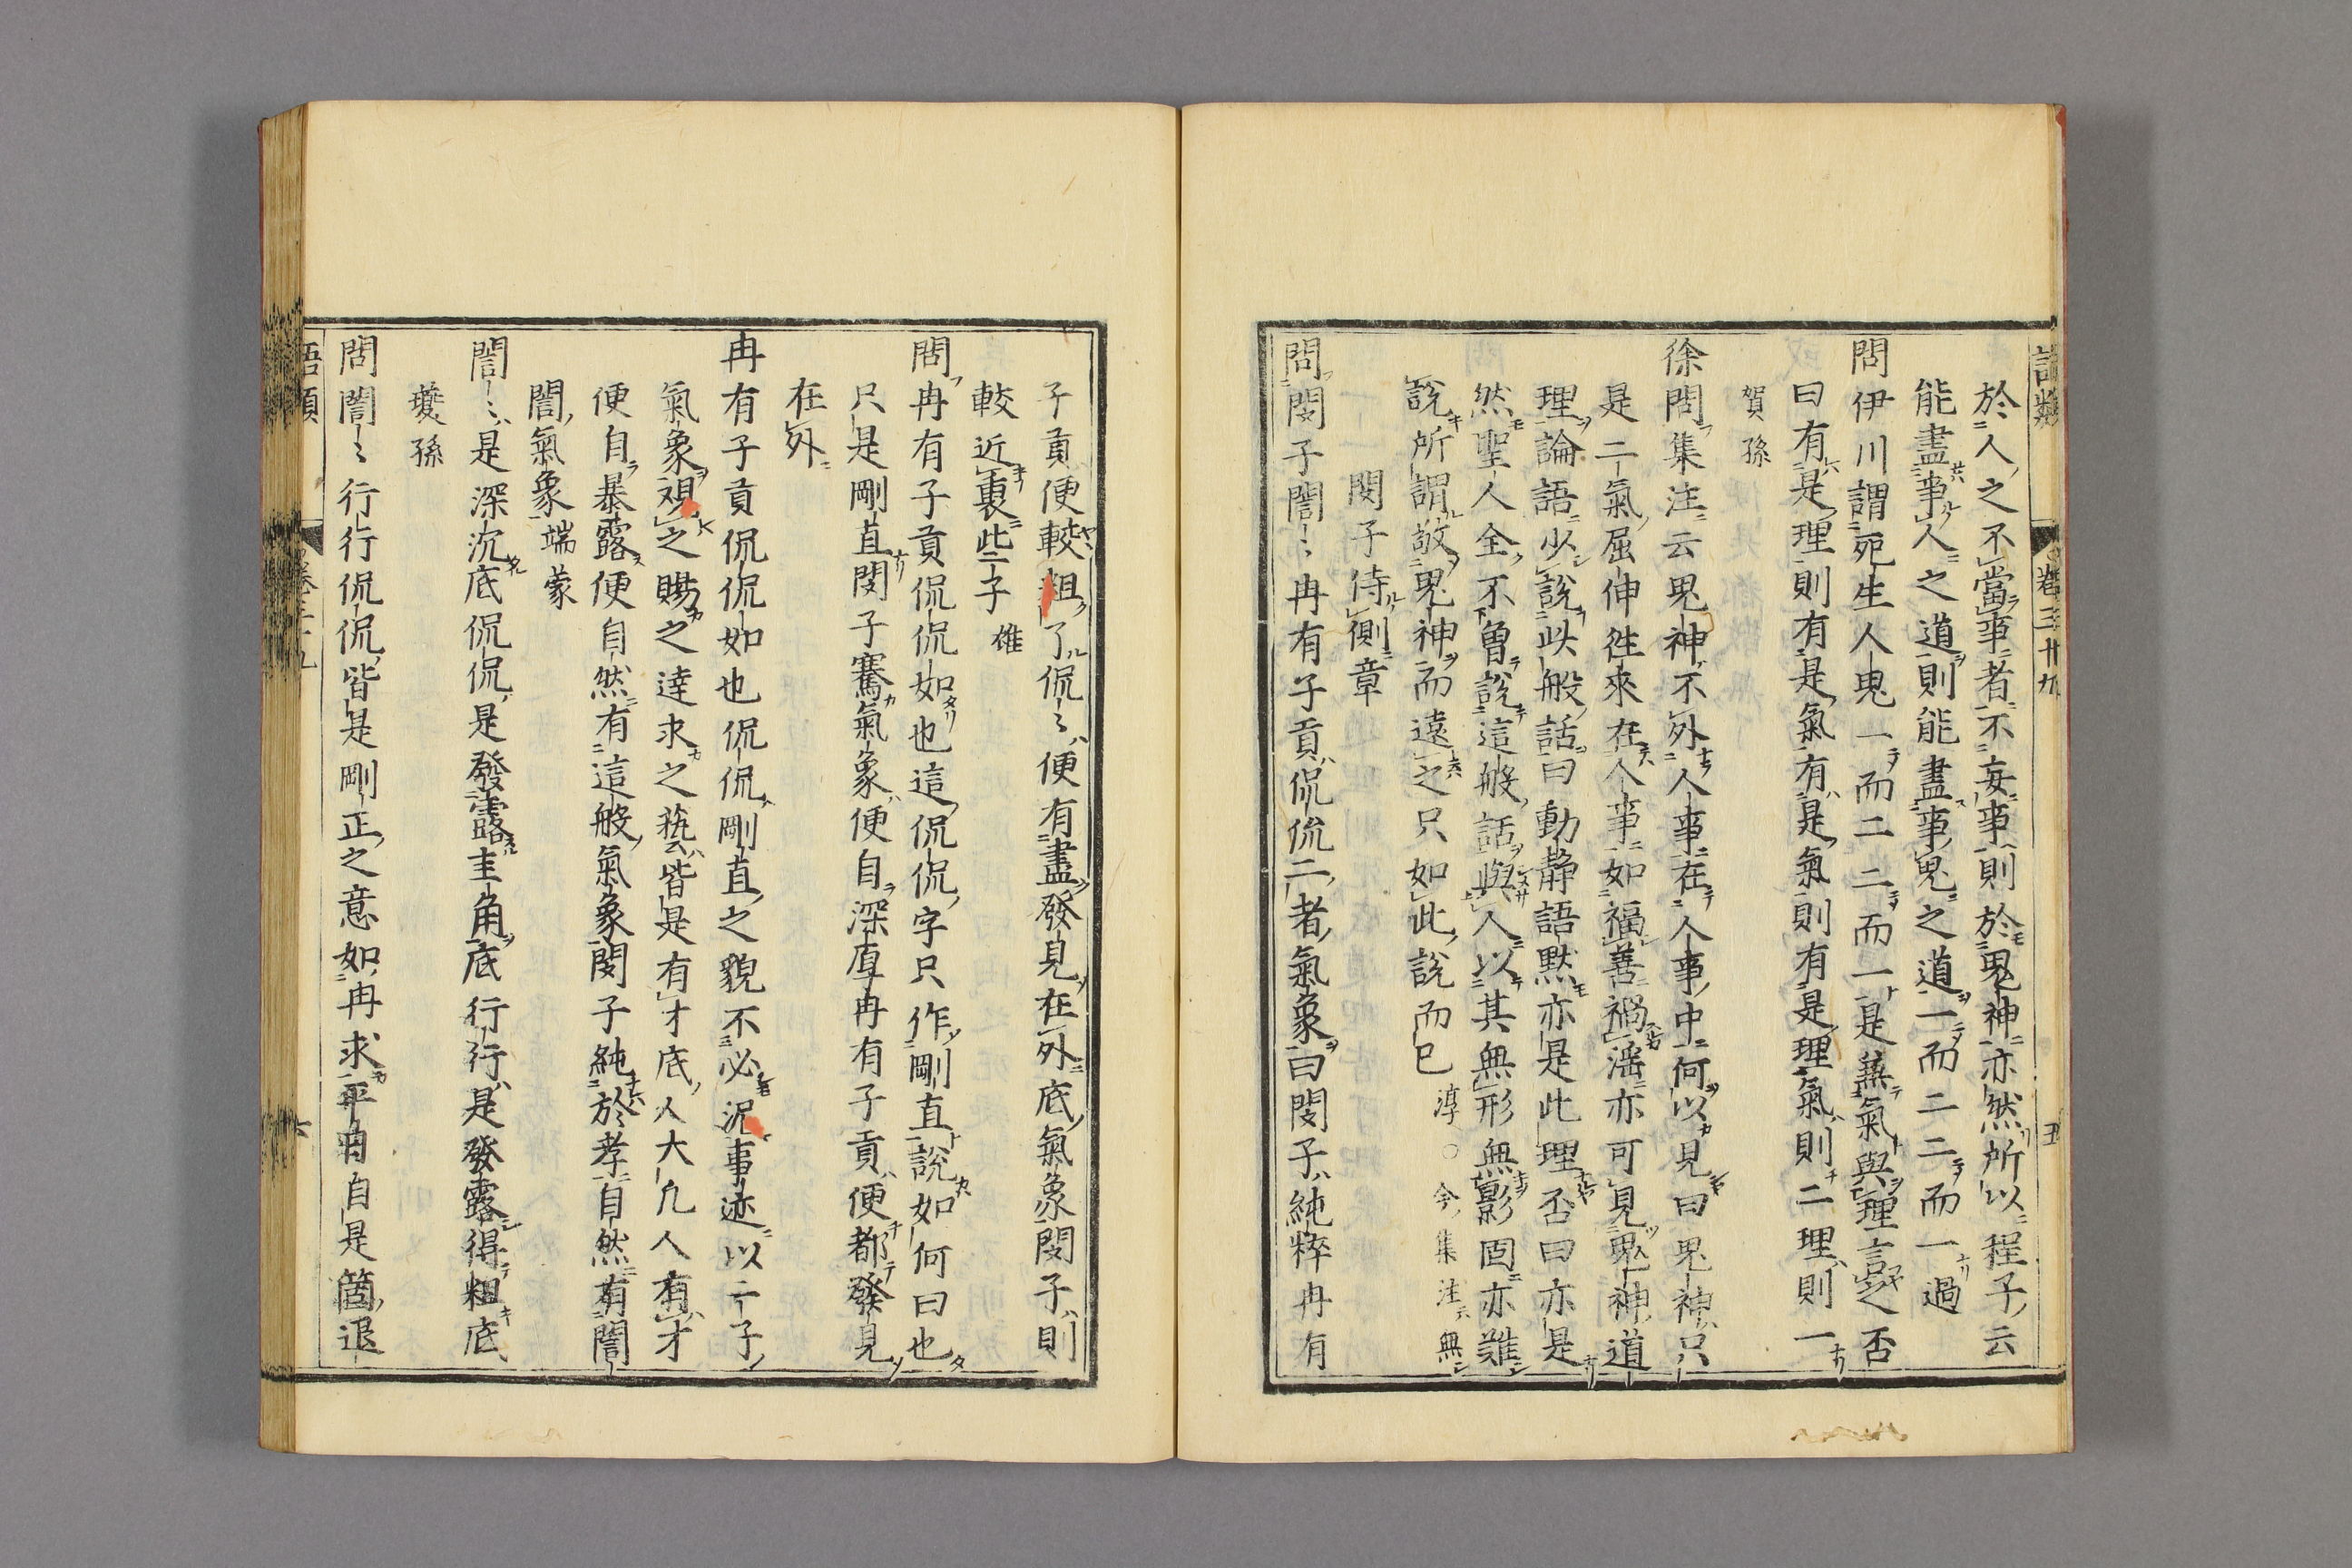 語類 卷三十九 五
於人之不當事者不妄事則於鬼神亦然所以程子云
能盡事人之道則能盡事鬼之道一而二二而一 過
問伊川謂死生人鬼一而二二而一是兼氣與理言之否
曰有是理則有是氣有是氣則有是理氣則二理則一
賀孫
徐問集注云鬼神不外人事在人事中何以見曰鬼神只
是二氣屈伸往來在人事如福善禍淫亦可見鬼神道
理論語少說此般話曰動靜語默亦是此理否曰亦是
然聖人全不曾說這般話與人以其無形無影固亦難
說所謂敬鬼神而遠之只如此說而已 淳○今集注無
閔子侍側章
問閔子誾〻冉有子貢侃侃二者氣象曰閔子純粹冉有
子貢便較粗了侃〻便有盡發見在外底氣象閔子則
較近裏些子 雉
問冉有子貢侃侃如也這侃侃字只作剛直說如何曰也
只是剛直閔子騫氣象便自深厚冉有子貢便都發見
在外
冉有子貢侃侃如也侃侃剛直之貌不必況事迹以二子
氣象覌之賜之達求之藝皆是有才底人大凡人有才
便自暴露便自然有這般氣象閔子純於孝自然有誾
誾氣象 端蒙
誾〻是深沉底侃侃是發露圭角底行行是發露得粗底
夔孫
問誾〻行行侃侃皆是剛正之意如冉求平自是箇退
語類 卷三十九 六